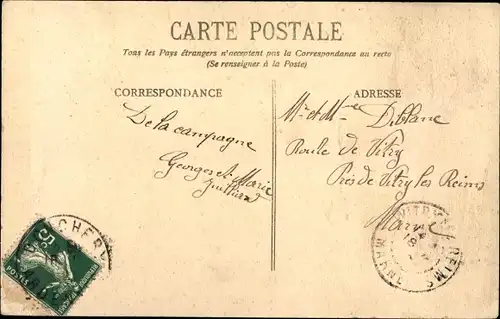 CARTE POSTALE
Tous les Pays étrangers n'acceptent pas la Correspondance au recto
(Se renseigner à la Poste)
CORRESPONDANCE
De la campagne
Georges et Marie
ADRESSE
Mr et Mme Diblane
Route de Vitry
Près de Vitry les Reims
Marne
REIMS
MARNE
5
POSTES